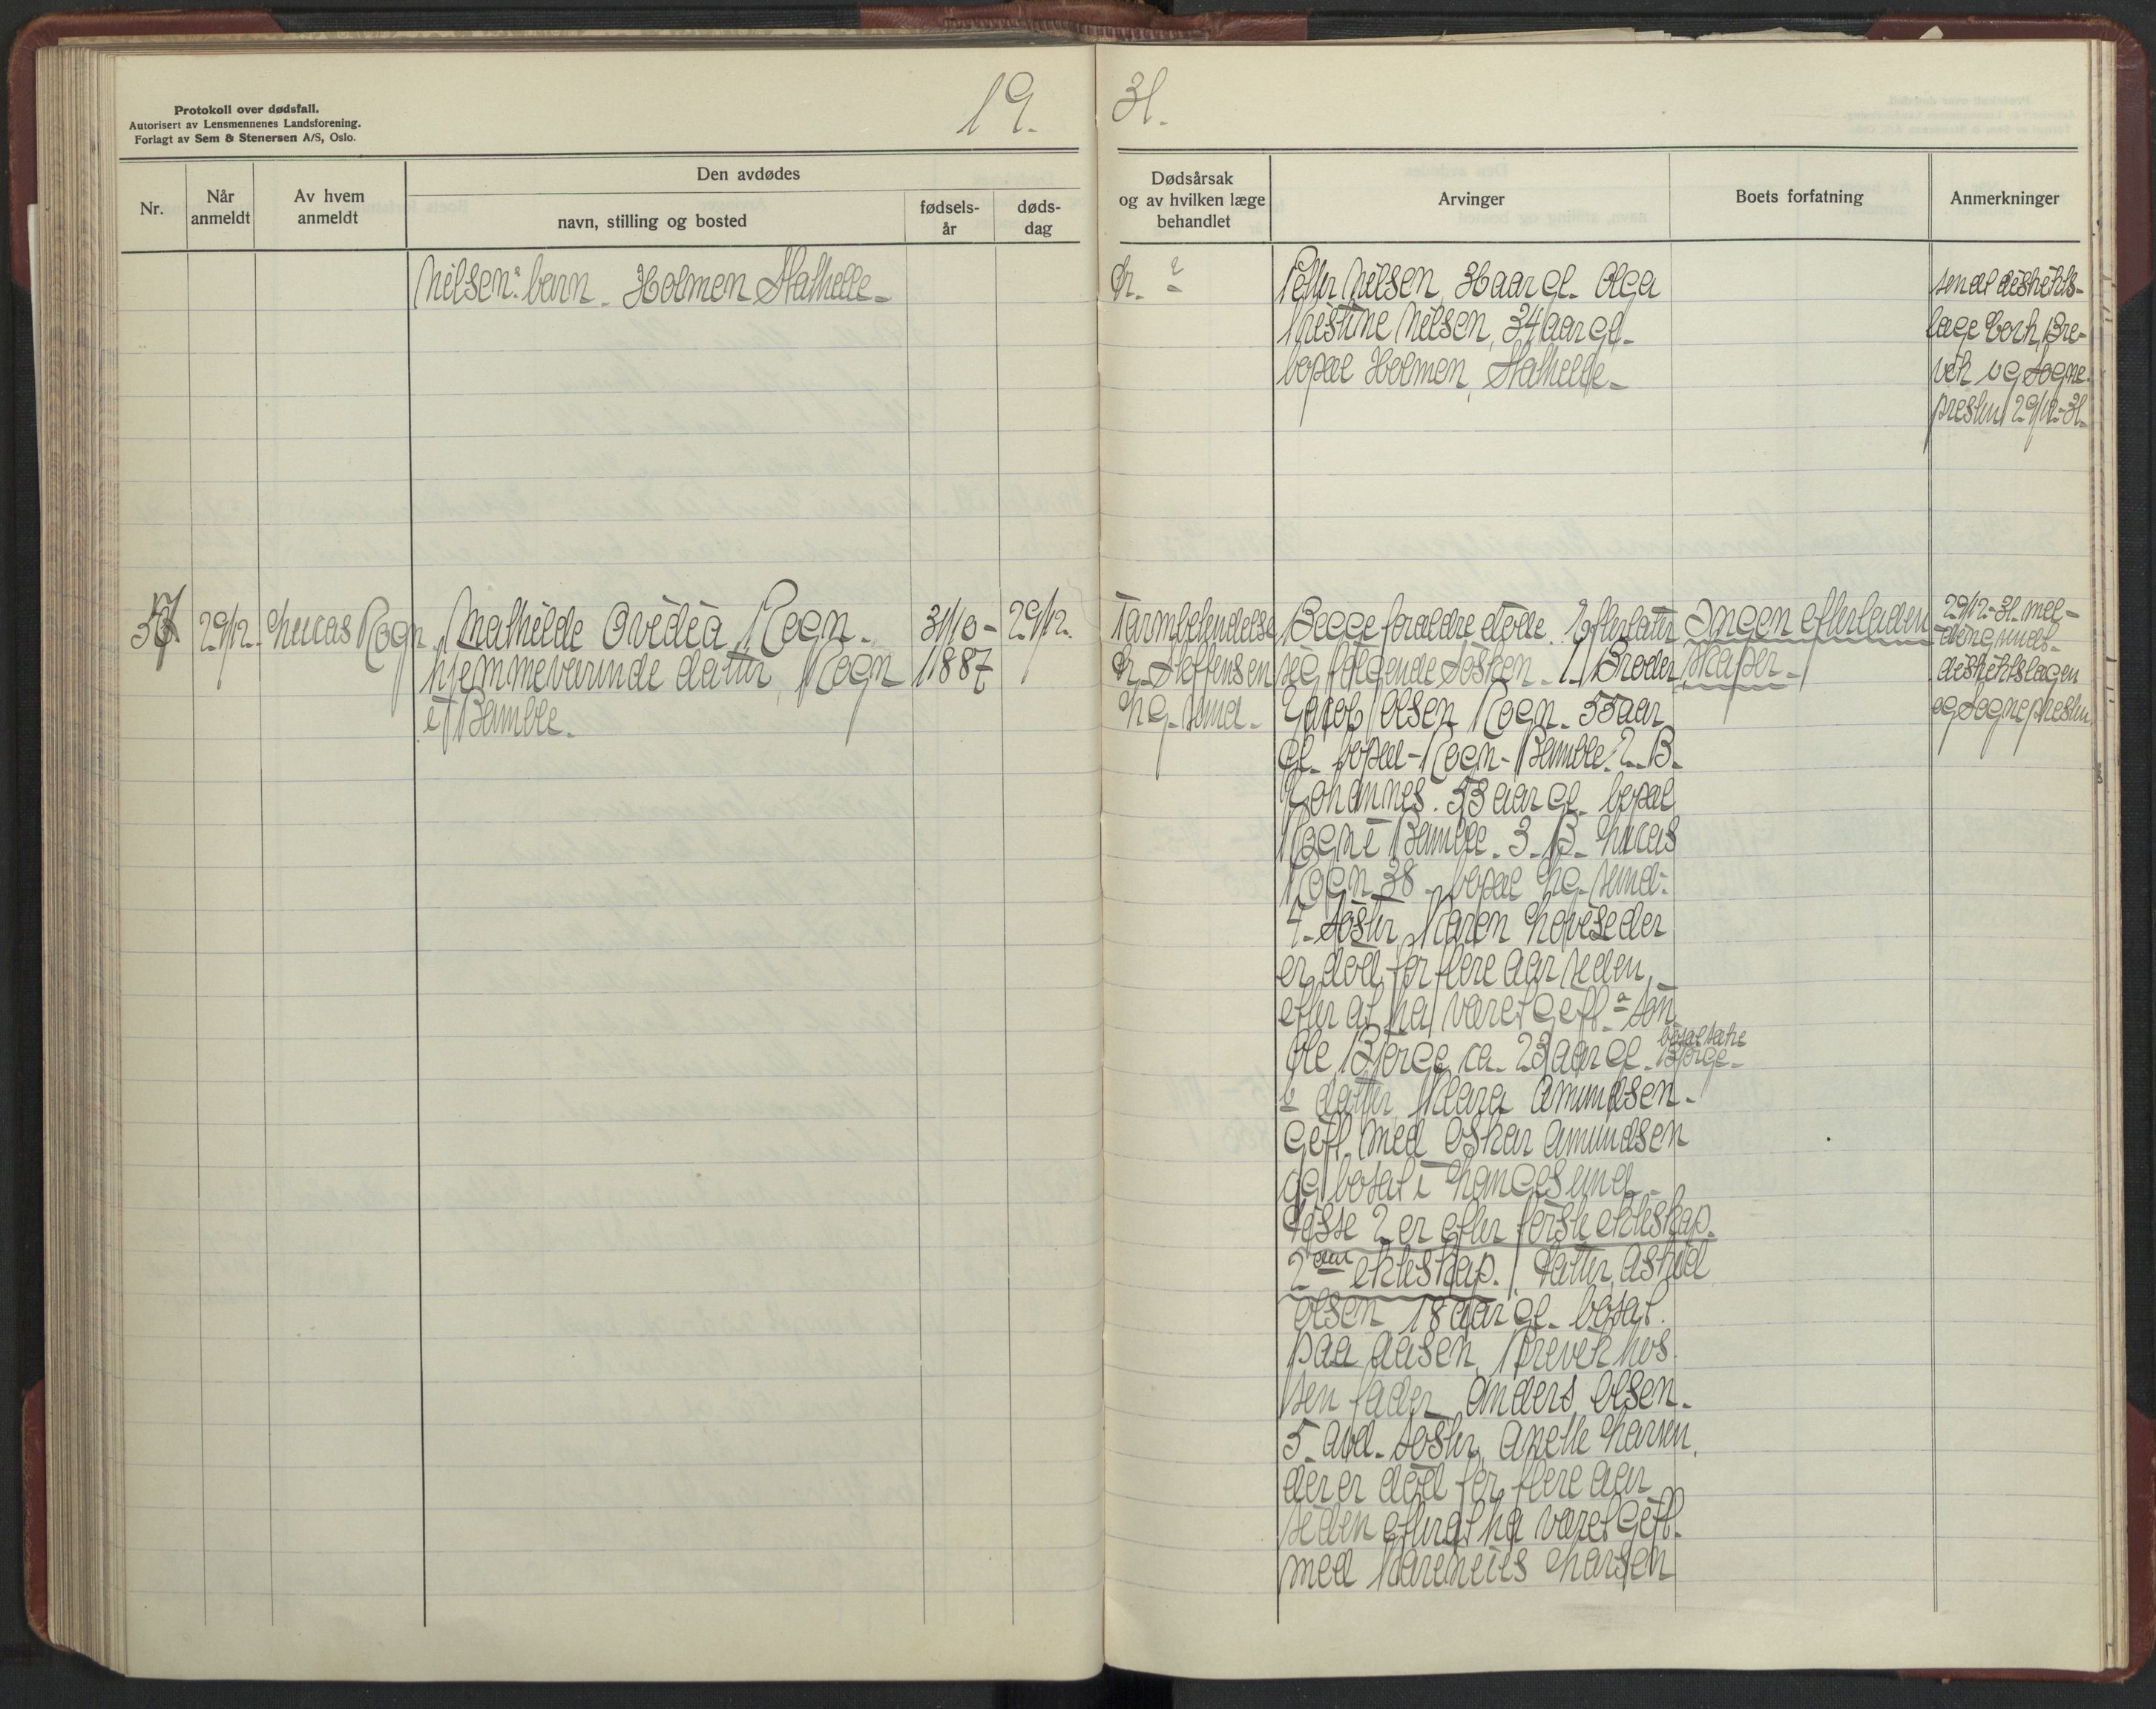 Protokoll over dødsfall.
Autorisert av Lensmennenes Landsforening.
Forlagt av Sem & Stenersen A/S, Oslo.
19.
Nr.
Når
anmeldt
Av hvem
anmeldt
Den avdødes
navn, stilling og bosted
fødsels-
år
døds-
dag
Nilsen: barn. Holmen Stathelle
57 29/12. Lucas Rogn
Mathilde Ovidia Rogn.
hjemmeværende datter, Rogn
i Bamble.
31/10-
1887
29/12.
31.
Dødsårsak
og av hvilken læge
behandlet
Arvinger
Boets forfatning
Anmerkninger
dr.
Petter Nilsen, 36 aar gl. Olga
Kristine Nilsen, 34 aar gl.
bosat Holmen, Stathelle
sendt distrikts-
læge Bork, Bre-
vik og sogne-
presten 29/12-31.
Tarmbetendelse
dr. Steffensen
Lg. sund.
Begge foraldre døde. Efterlater
sig følgende søsken. 1. Broder
Jacob Olsen Rogn. 55 aar
gl. bosat - Rogn - Bamble. 2. B.
Johannes. 53 aar gl. bosat
Rogn i Bamble. 3. B. Lucas
Rogn 38 bosat Lg. sund.
4. søster Karen Lovise der
er død for flere aar siden,
efter at ha været gift. a søn
Ole Bjørge ca. 23 aar gl. bosat Bjørge
b datter Klara Amundsen.
gift med Oskar Amundsen
og bosat i Langesund
disse 2 er efter første ekteskap.
2det ekteskap. datter Astrid
Olsen 18 aar gl. bosat
paa Aasen, Brevik hos
sin fader Anders Olsen.
5. avd. søster Anette Larsen.
der er død for flere aar
siden efter at ha været gift
med Karenius Larsen
Ingen efterladen
skaper.
29/12-31. mel-
ding sendt
distriktslægen
og sognepresten